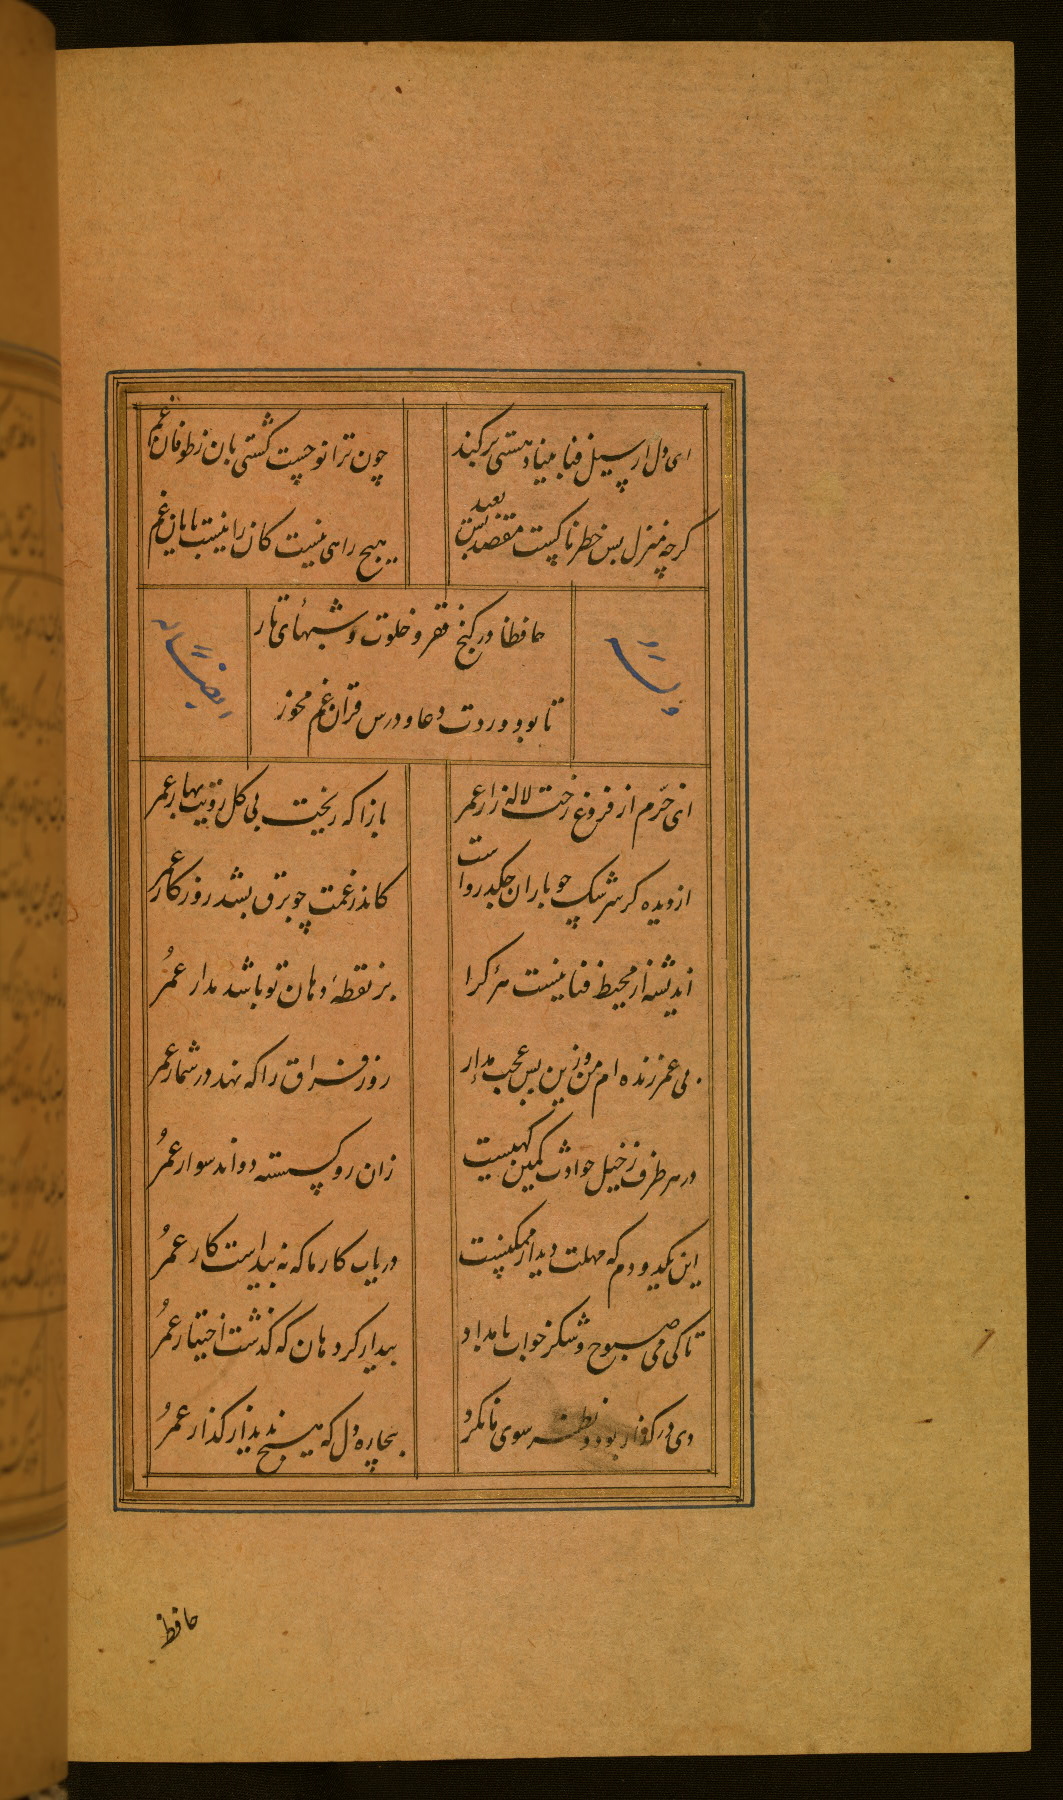 ای دل ار سیل فنا بنیاد هستی برکند
چون ترا نوحست کشتی بان ز طوفان غم مخور
کرچه منزل بس خطرناکست مقصد بس بعید
هیچ راهی نیست کان را نیست پایان غم مخور
حافظا در کنج فقر و خلوت و شبهای تار
تا بود وردت دعا و درس قرآن غم مخور
وله
ایضا
ای خرم از فروغ رخت لاله زار عمر
بازا که ریخت بی کل رویت بهار عمر
از دیده کر سرشک چو باران چکد رواست
کاندر غمت چو برق بشد روزکار عمر
اندیشه از محیط فنا نیست هر کرا
بر نقطهٔ دهان تو باشد مدار عمر
بی عمر زنده ام من و زین بس عجب مدار
روز فراق را که نهد در شمار عمر
در هر طرف ز خیل حوادث کمین کهیست
زان رو کسسته دواند سوار عمر
این یکدو دم که مهلت دیدار ممکنست
دریاب کار ما که نه پیداست کار عمر
تا کی می صبوح و شکر خواب بامداد
بیدار کرد هان که کذشت اختیار عمر
دی در کذار بود و نظر سوی ما نکرد
بیچاره دل که هیچ ندید از کذار عمر
حافظ